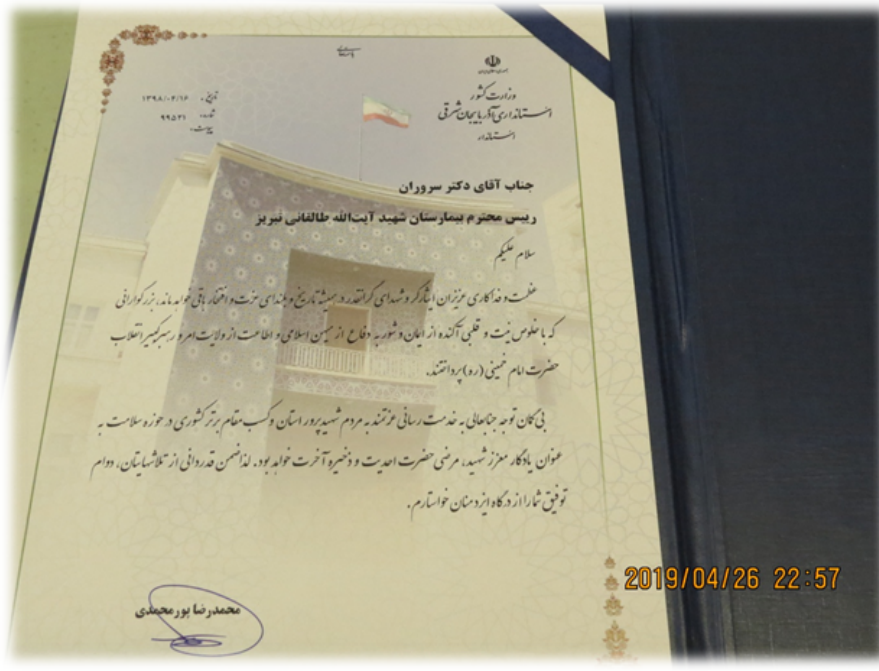 جمهوری اسلامی ایران
وزارت کشور
استانداری آذربایجان شرقی
استاندار
تاریخ :
شماره :
۹۹۵۲۱
پیوست :
جناب آقای دکتر سروران
رییس محترم بیمارستان شهید آیت‌الله طالقانی تبریز
سلام علیکم
عظمت و فداکاری عزیزان ایثارگر و شهدای گرانقدر در همیشه تاریخ و بلندای عزت و افتخار باقی خواهد ماند، بزرگوارانی
که با خلوص نیت و قلبی آکنده از ایمان و شور به دفاع از میهن اسلامی و اطاعت از ولایت امر و رهبر کبیر انقلاب
حضرت امام خمینی (ره) پرداختند.
بی گمان توجه جنابعالی به خدمت رسانی عزتمند به مردم شهیدپرور استان و کسب مقام برتر کشوری در حوزه سلامت به
عنوان یادگار معزز شهید، مرضی حضرت احدیت و ذخیره آخرت خواهد بود. لذا ضمن قدردانی از تلاشهایتان، دوام
توفیق شما را از درگاه ایزد منان خواستارم.
محمدرضا پورمحمدی
2019/04/26 22:57